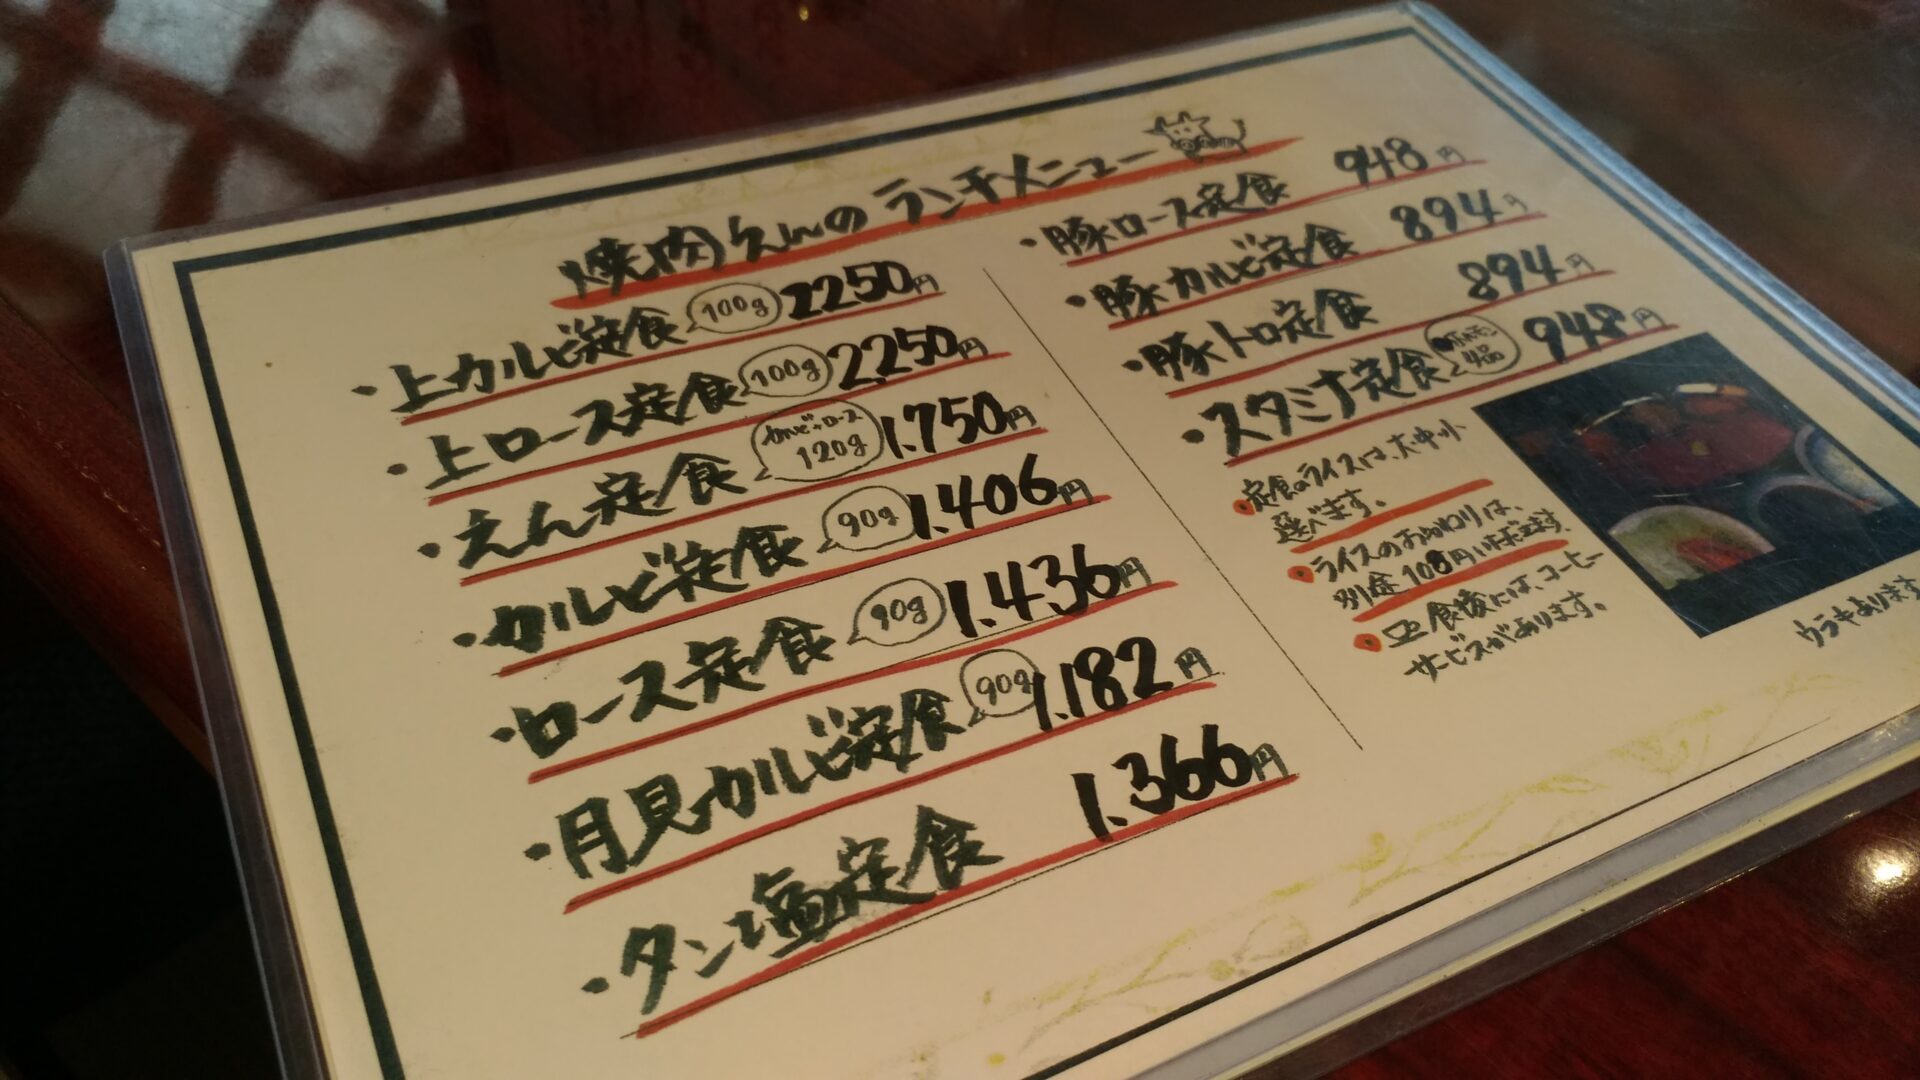 焼肉えんの ランチメニュー
・上カルビ定食 100g 2250円
・上ロース定食 100g 2.250円
・えん定食 カルビ・ロース 120g 1.750円
・カルビ定食 90g 1.406円
・ロース定食 90g 1.436円
・月見カルビ定食 90g 1.182円
・タン塩定食 1.366円
・豚ロース定食 948円
・豚カルビ定食 894円
・豚トロ定食 894円
・スタミナ定食 ホルモン 4品 948円
・定食のライスは、大・中・小
選べます。
・ライスのおかわりは、
別途 108円いただきます。
・食後には、コーヒー
サービスがあります。
ウラもあります